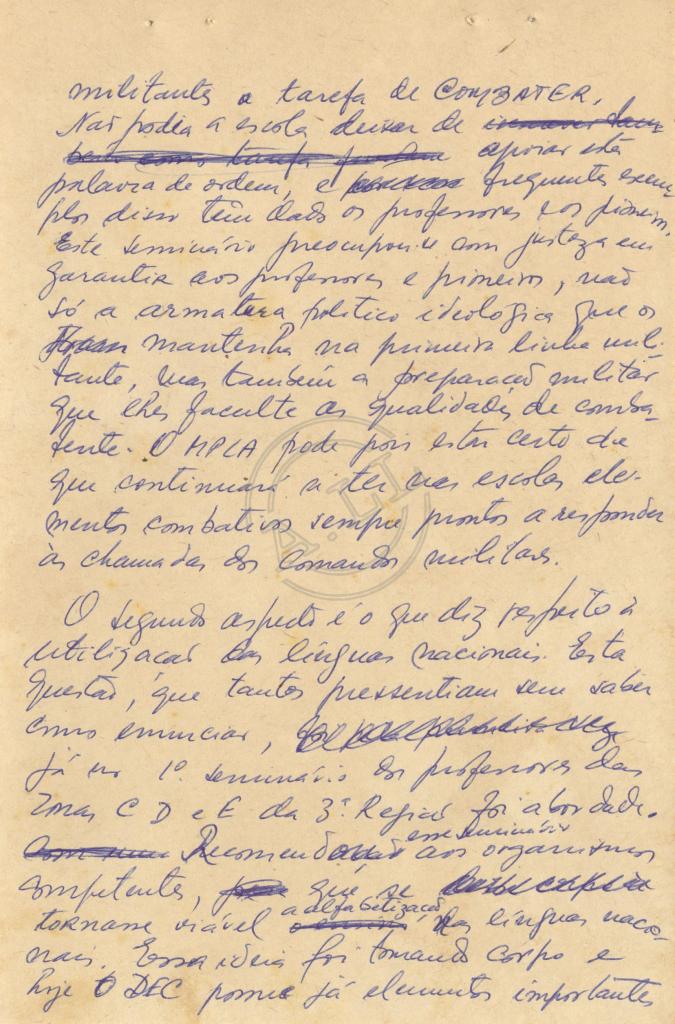 militantes a tarefa de COMBATER.
Não podia a escola deixar de
apoiar esta
palavra de ordem, e frequentes exem-
plos disso têm dado os professores e os pioneiros.
Este seminário preocupou-se com justeza em
garantir aos professores e pioneiros, não
só a armatura politico ideológica que os
mantenha na primeira linha mili-
tante, mas também a preparação militar
que lhes faculte as qualidades de comba-
tente. O MPLA pode pois estar certo de
que continuará a ter nas escolas ele-
mentos combativos sempre prontos a responder
às chamadas dos Comandos militares.
O segundo aspecto é o que diz respeito à
utilização das línguas nacionais. Esta
questão, que tantos pressentiam sem saber
como enunciar,
já no 1º seminário dos professores das
Zonas C D e E da 3ª Região foi abordada.
Recomendou esse seminário aos organismos
competentes, que se
tornasse viável a alfabetização nas línguas nacio-
nais. Essa ideia foi tomando corpo e
hoje o DEC possue já elementos importantes